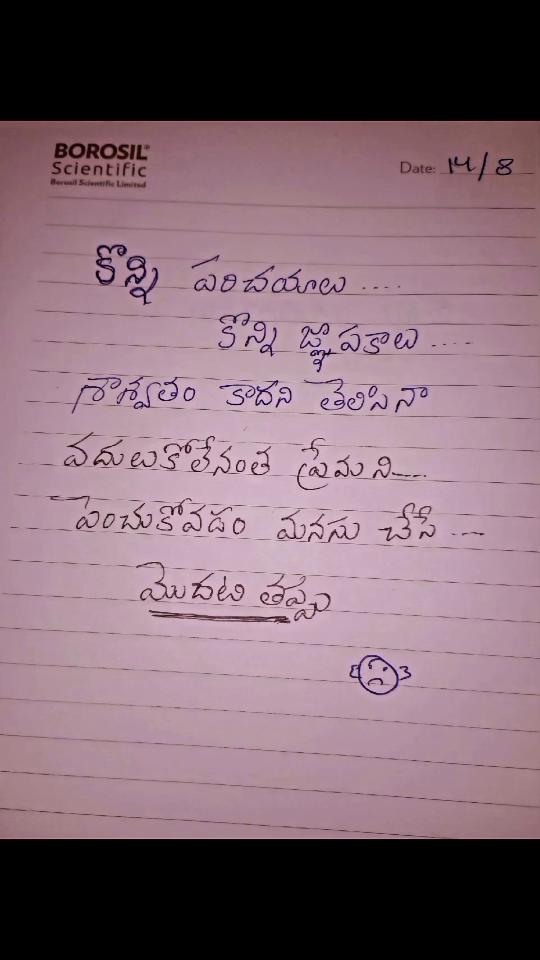 BOROSIL®
Scientific
Borosil Scientific Limited
Date: 14/8
కొన్ని పరిచయాలు ....
కొన్ని జ్ఞాపకాలు ....
శాశ్వతం కాదని తెలిసినా
వదులుకోలేనంత ప్రేమని....
పెంచుకోవడం మనసు చేసే ....
మొదటి తప్పు